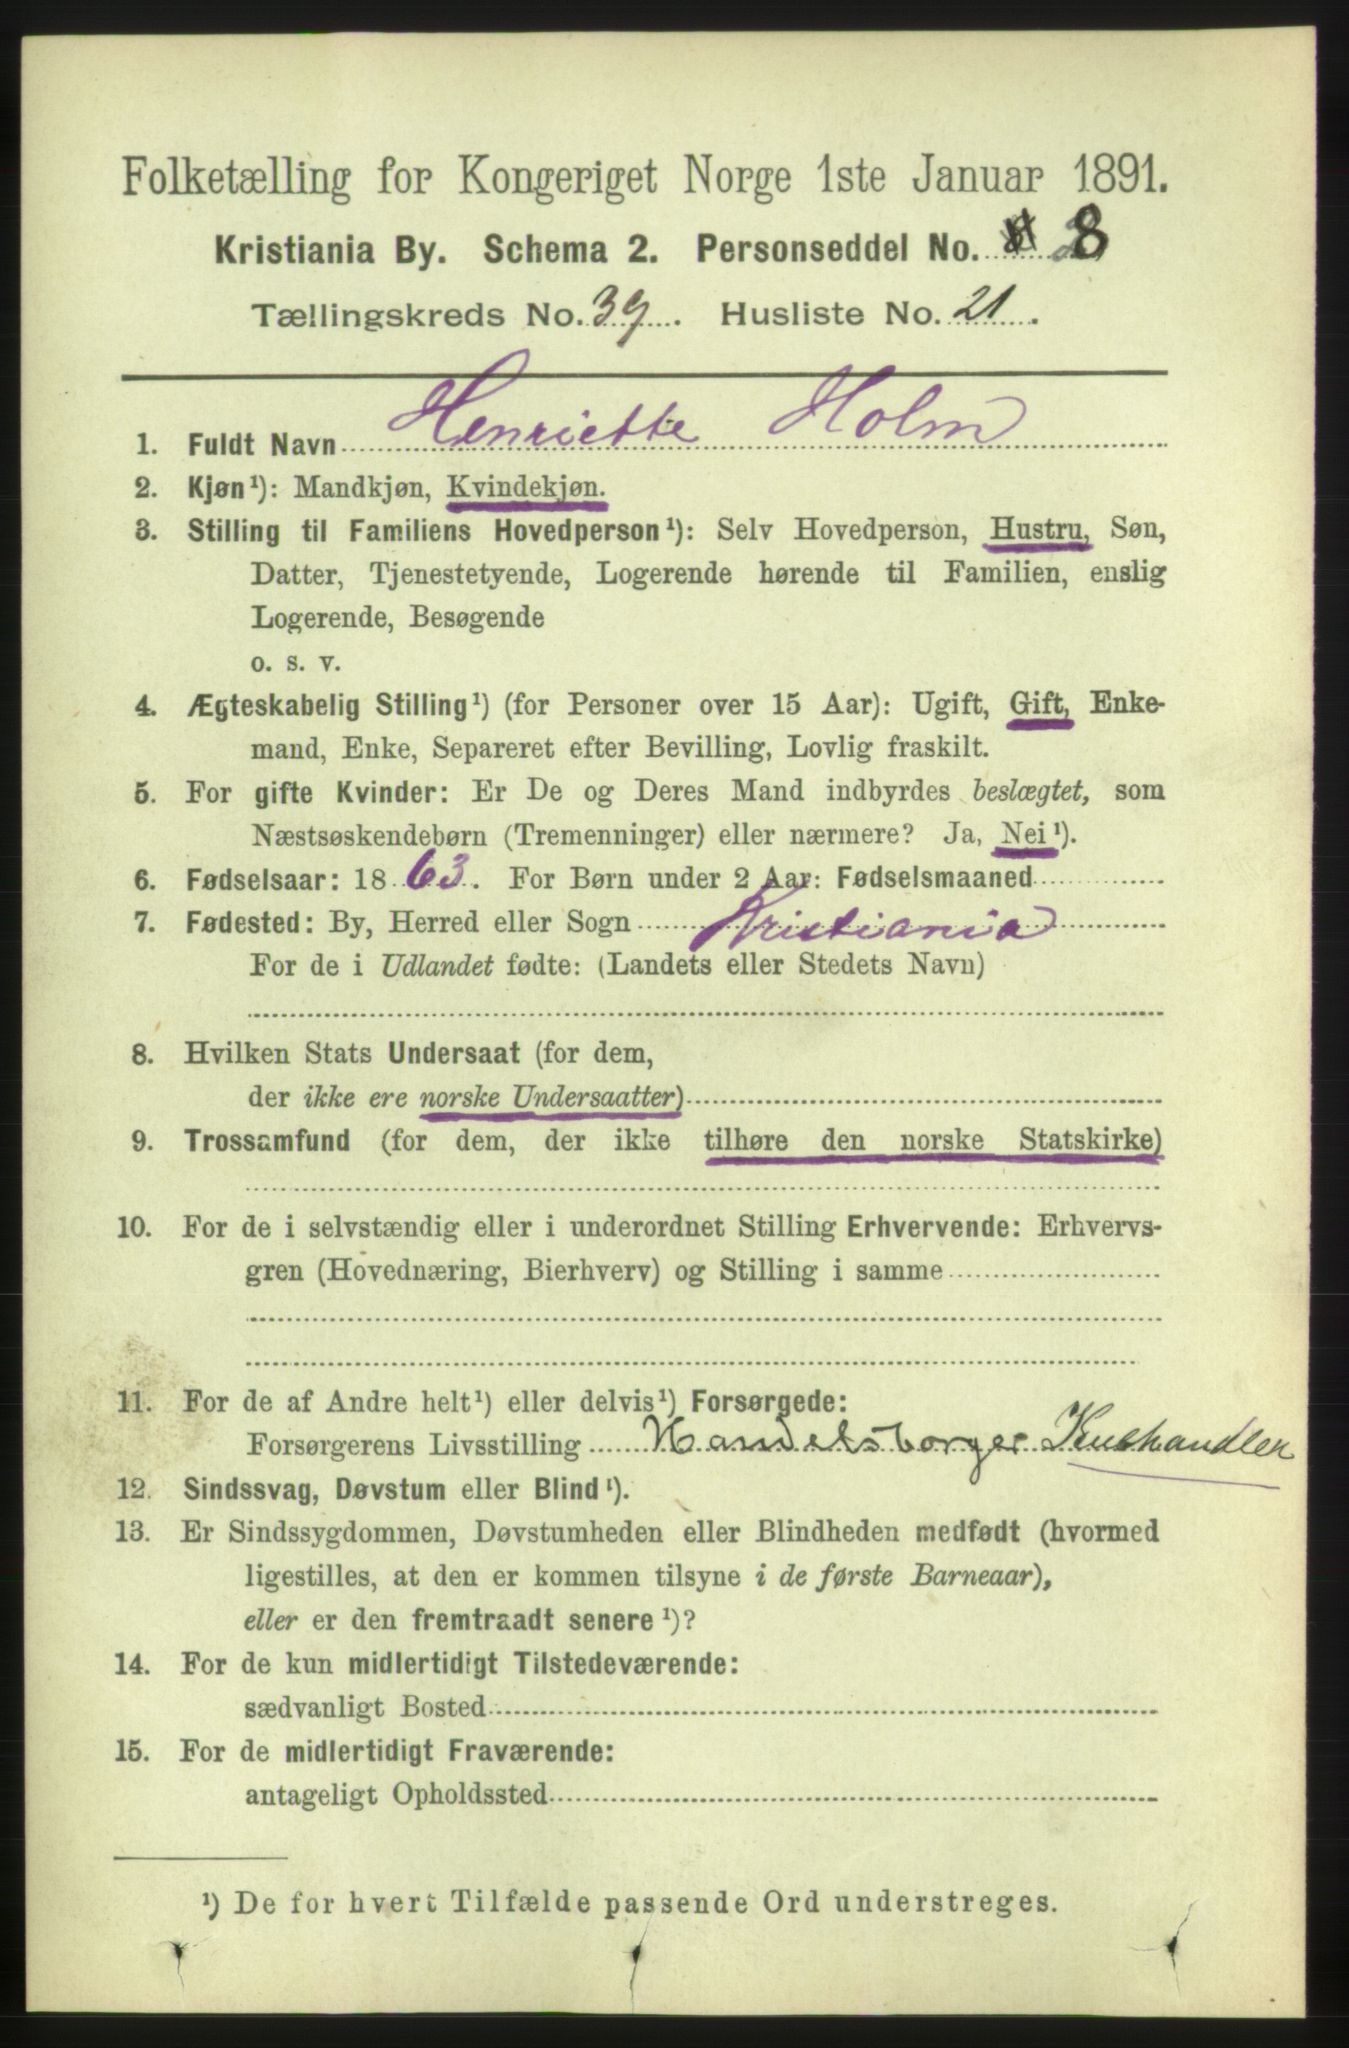 Folketælling for Kongeriget Norge 1ste Januar 1891.
Kristiania By. Schema 2. Personseddel No. 8
Tællingskreds No. 39. Husliste No. 21.
1. Fuldt Navn Henriette Holm
2. Kjøn¹): Mandkjøn, Kvindekjøn.
3. Stilling til Familiens Hovedperson¹): Selv Hovedperson, Hustru, Søn,
Datter, Tjenestetyende, Logerende hørende til Familien, enslig
Logerende, Besøgende
o. s. v.
4. Ægteskabelig Stilling¹) (for Personer over 15 Aar): Ugift, Gift, Enke-
mand, Enke, Separeret efter Bevilling, Lovlig fraskilt.
5. For gifte Kvinder: Er De og Deres Mand indbyrdes beslægtet, som
Næstsøskendebørn (Tremenninger) eller nærmere? Ja, Nei¹).
6. Fødselsaar: 1863. For Børn under 2 Aar: Fødselsmaaned
7. Fødested: By, Herred eller Sogn Kristiania
For de i Udlandet fødte: (Landets eller Stedets Navn)
8. Hvilken Stats Undersaat (for dem,
der ikke ere norske Undersaatter)
9. Trossamfund (for dem, der ikke tilhøre den norske Statskirke)
10. For de i selvstændig eller i underordnet Stilling Erhvervende: Erhvervs-
gren (Hovednæring, Bierhverv) og Stilling i samme
11. For de af Andre helt¹) eller delvis¹) Forsørgede:
Forsørgerens Livsstilling Handelsborger
12. Sindssvag, Døvstum eller Blind¹).
13. Er Sindssygdommen, Døvstumheden eller Blindheden medfødt (hvormed
ligestilles, at den er kommen tilsyne i de første Barneaar),
eller er den fremtraadt senere¹)?
14. For de kun midlertidigt Tilstedeværende:
sædvanligt Bosted
15. For de midlertidigt Fraværende:
antageligt Opholdssted
¹) De for hvert Tilfælde passende Ord understreges.